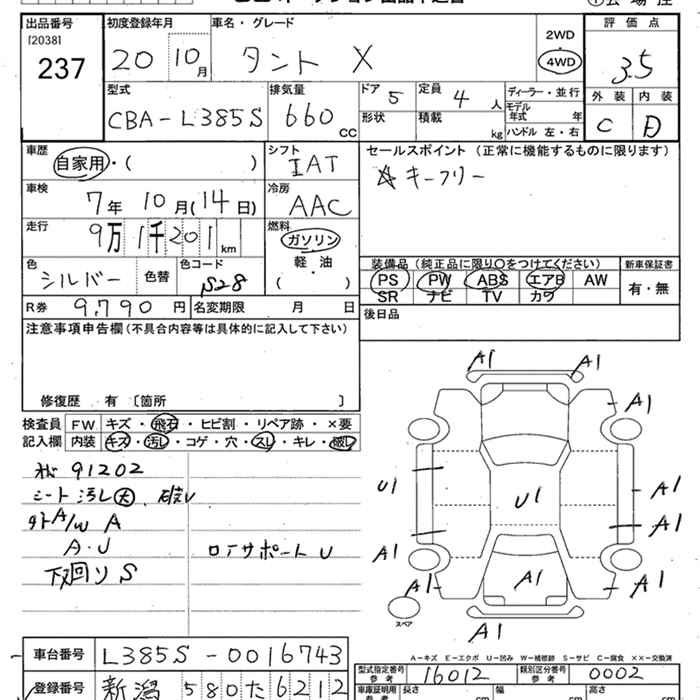 出品番号 初度登録年月 車名・グレード 2WD 評価点
[2038]
237 20 10月 タント X 4WD 3.5
外装 内装
C D
型式 排気量 ドア 定員 ディーラー・並行
CBA-L385S 660cc 5 4人 モデル年式 年
形状 積載 kg ハンドル 左・右
車歴 シフト セールスポイント (正常に機能するものに限ります)
自家用・( ) IAT ☆キーフリー
車検 冷房
7年10月(14日) AAC
走行 燃料
9万1千201km ガソリン
軽油
( )
色 色替 色コード
シルバー S28
装備品 (純正品に限り〇をつけてください) 新車保証書
PS PW ABS エアB AW 有・無
SR ナビ TV カワ
R券 9,790円 名変期限 月 日 後日品
注意事項申告欄 (不具合内容等は具体的に記入して下さい)
修復歴 有 〔箇所 〕
検査員 FW キズ・飛石・ヒビ割・リペア跡・×要
記入欄 内装 キズ・汚し・コゲ・穴・スレ・キレ・破し
91202
シート汚し大、破レ
外A/W A
A・U
下廻りS
ロアサポートU
A1 A1
A1
U1 U1 A1
A1 A1
A1 A1 A1
A1
スペア
A-キズ E-エクボ U-凹み W-補修跡 S-サビ C-腐食 XX-交換済
車台番号 L385S-0016743
型式指定番号 参考 16012 類別区分番号 参考 0002
登録番号 新潟 580 た 6212
車庫証明用 参考 長さ cm 幅 cm 高さ cm